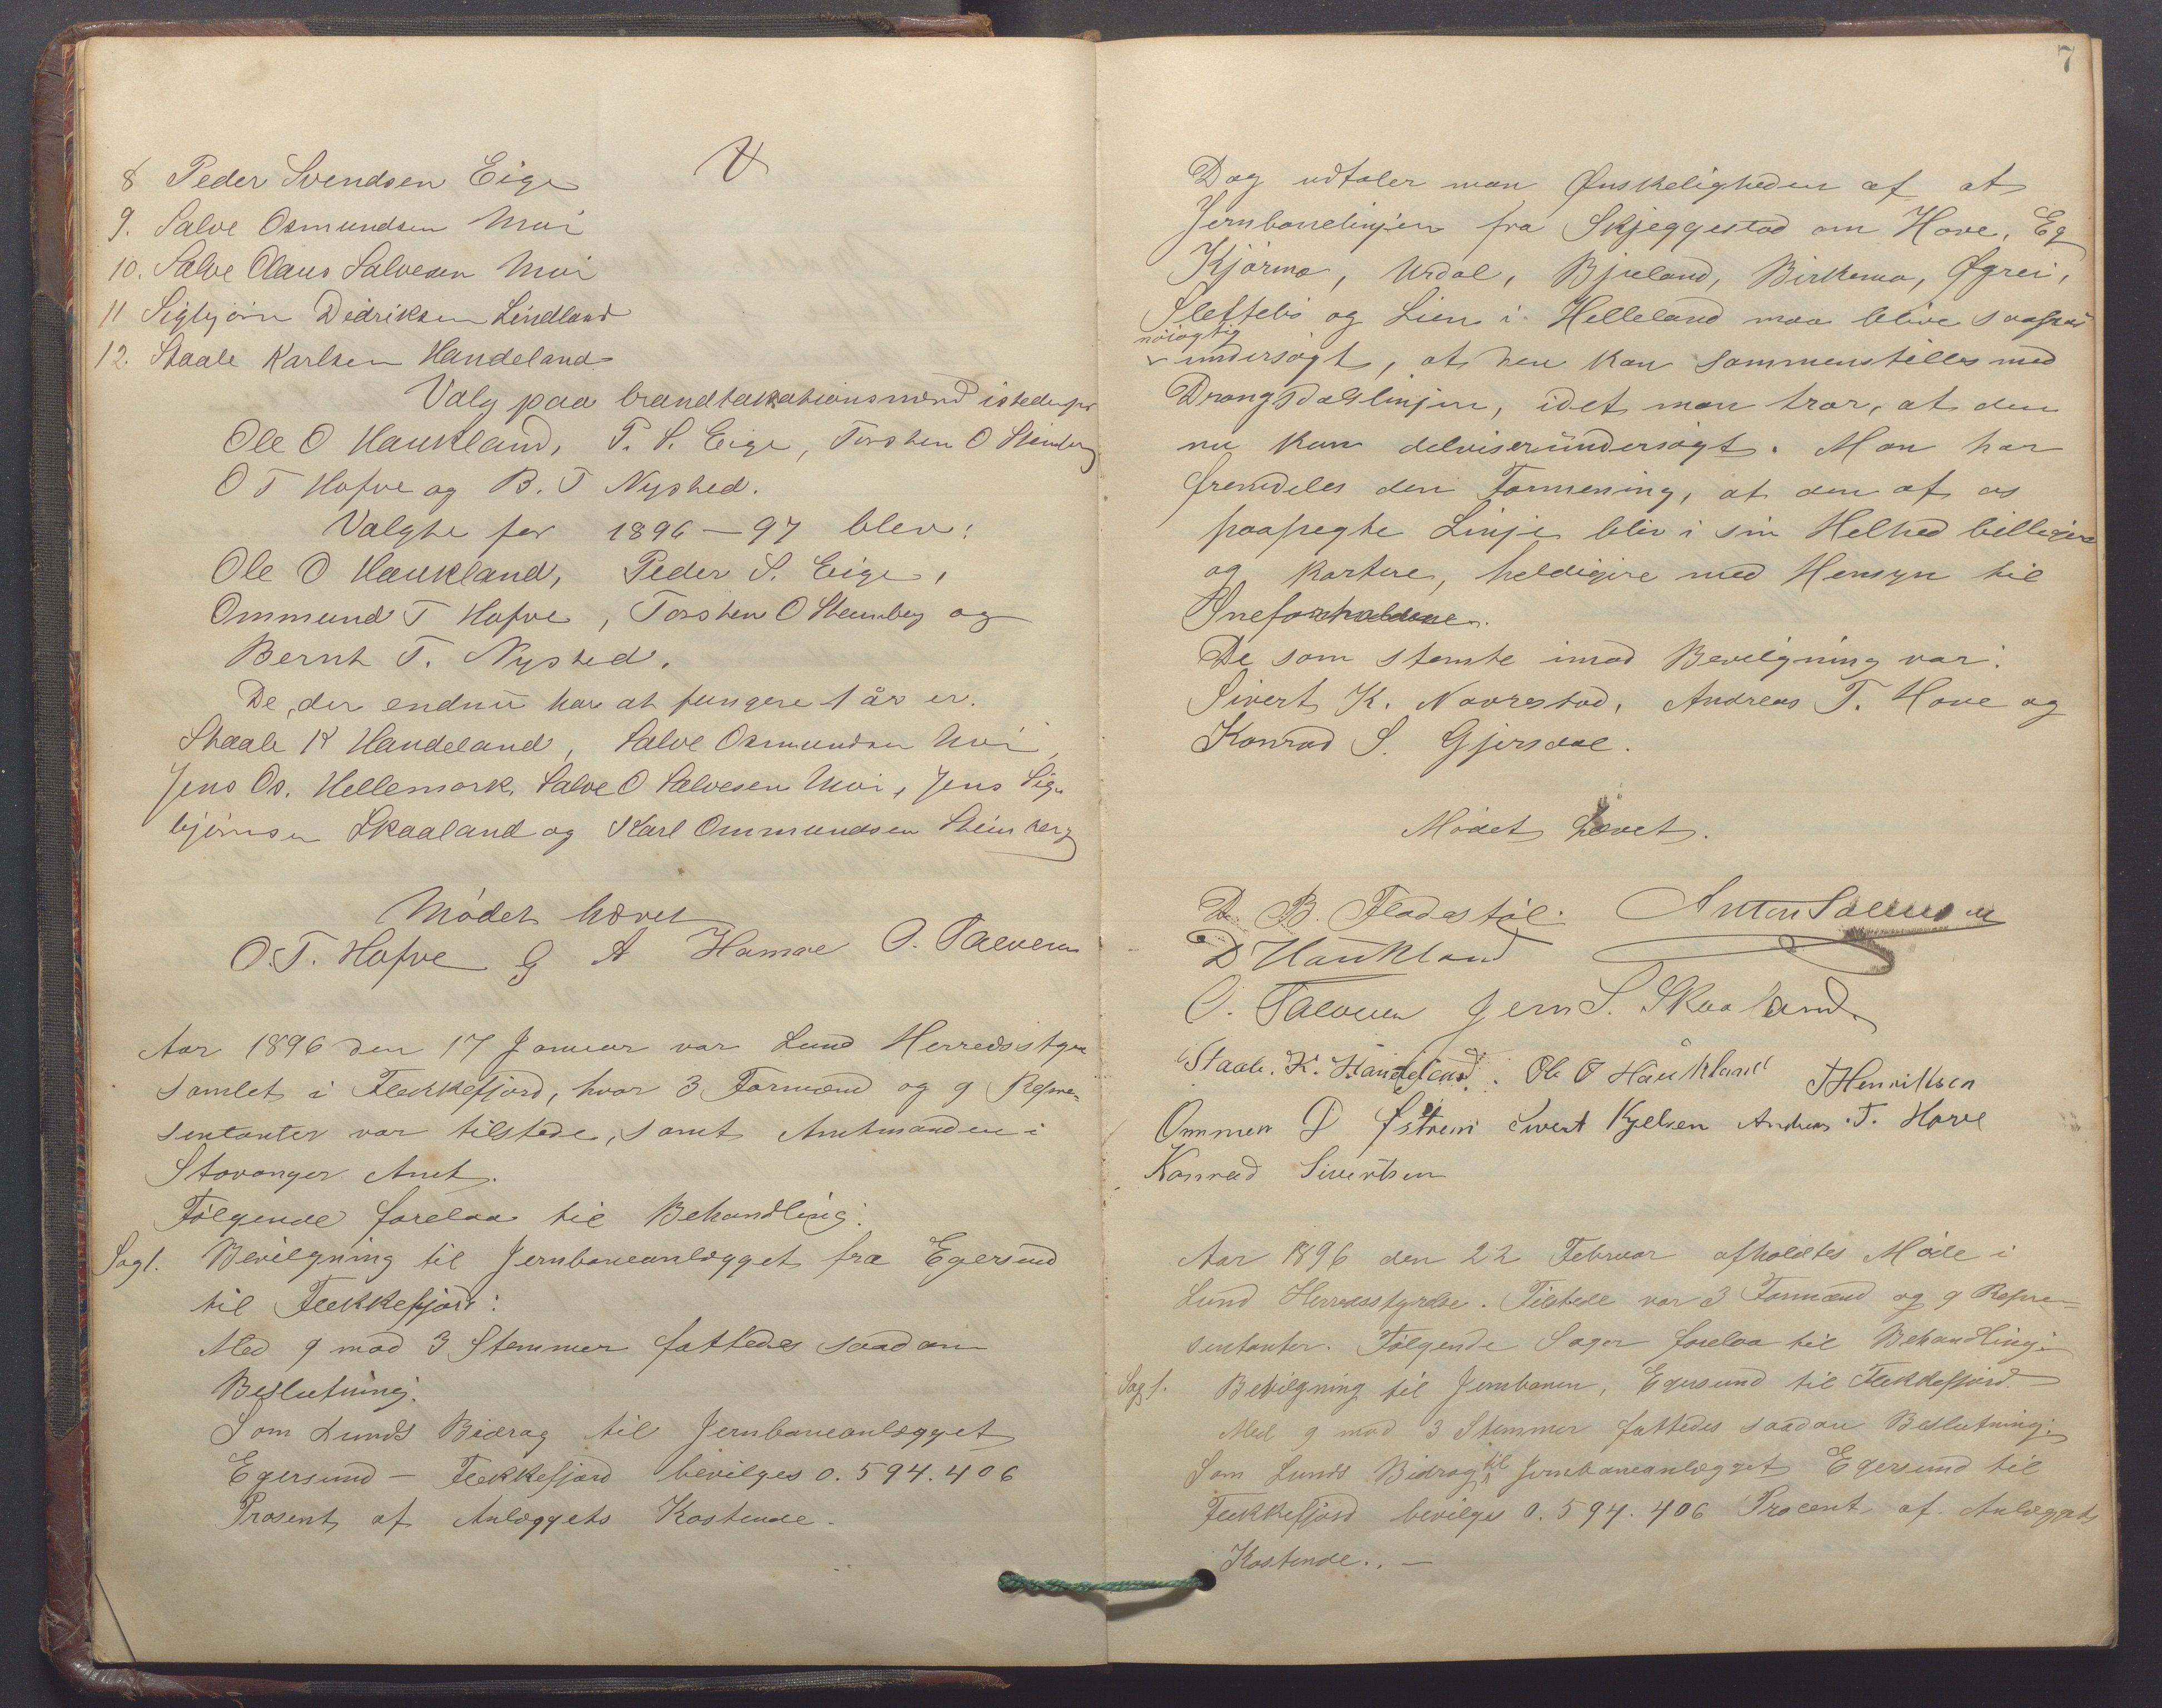 8 Peder Svendsen Eige
9. Salve Osmundsen Moi
10. Salve Olaus Salvesen Moi
11 Sigbjörn Didriksen Lindland
12. Staale Karlsen Handeland
Valg paa brandtakstationsmænd istedenfor
Ole O Haukland, P. S. Eige, Torsten O Steinberg
O T Hofve og B. T Nysted.
Valgte for 1896–97 blev:
Ole O Haukland, Peder S. Eige,
Ommund T Hofve, Torsten O Steinberg og
Bernt T. Nysted.
De, der endnu har at fungere 1 år er.
Staale K Handeland, Salve Osmundsen Moi,
Jens Os. Hellemork, Salve O Salvesen Moi, Jens Sig-
björnsen Skaaland og Karl Ommundsen Steinberg
Mödet hævet
O. T. Hofve G A Hamre O. Salvesen
Aar 1896 den 17 Januar var Lund Herredsstyre
samlet i Flekkefjord, hvor 3 Formænd og 9 Repræ-
sentanter var tilstede, samt Amtmanden i
Stavanger Amt.
Fölgende forelaa til Behandling:
Sag 1. Bevilgning til Jernbaneanlægget fra Egersund
til Flekkefjord:
Med 9 mod 3 Stemmer fattedes saadan
Beslutning:
Som Lunds Bidrag til Jernbaneanlægget
Egersund – Flekkefjord bevilges 0.594.406
Prosent af Anlæggets Kostende.
7
Dog udtaler man Ønskeligheden af at
Jernbanelinjen fra Skjeggestad om Hove, Eg
Kjörmo, Urdal, Bjuland, Birkemo, Øgrei,
Slettebö og Lien i Helleland maa blive saapas
nöiagtig
undersögt, at den kan sammenstilles med
Drangsdalslinjen, idet man tror, at den
nu kun delvis er undersögt. Man har
fremdeles den Formening, at den af os
paapegte Linje bliv i sin Helhed billigere
og kortere, heldigere med Hensyn til
Sneforholdene.
De som stemte imod Bevilgning var:
Sivert K. Navrestad, Andreas T. Hove og
Konrad S. Gjersdal.
Mödet hævet.
D. B. Fladestöl. Anton Salvesen
D Haukland
O. Salvesen Jens S. Skaaland.
Staale. K. Handeland. Ole O Haukland J Henriksen
Ommen D Østrem Sivert Kjelsen Andreas. T. Hove
Konrad Sivertsen
Aar 1896 den 22 Februar afholdtes Möde i
Lund Herredsstyrelse. Tilstede var 3 Formænd og 9 Repræ-
sentanter. Fölgende Sager forelaa til Behandling:
Sag 1. Bevilgning til Jernbanen, Egersund til Flekkefjord.
Med 9 mod 3 Stemmer fattedes saadan Beslutning:
Som Lunds Bidrag til Jernbaneanlægget Egersund til
Flekkefjord bevilges 0.594.406 Procent af Anlæggets
Kostende. –